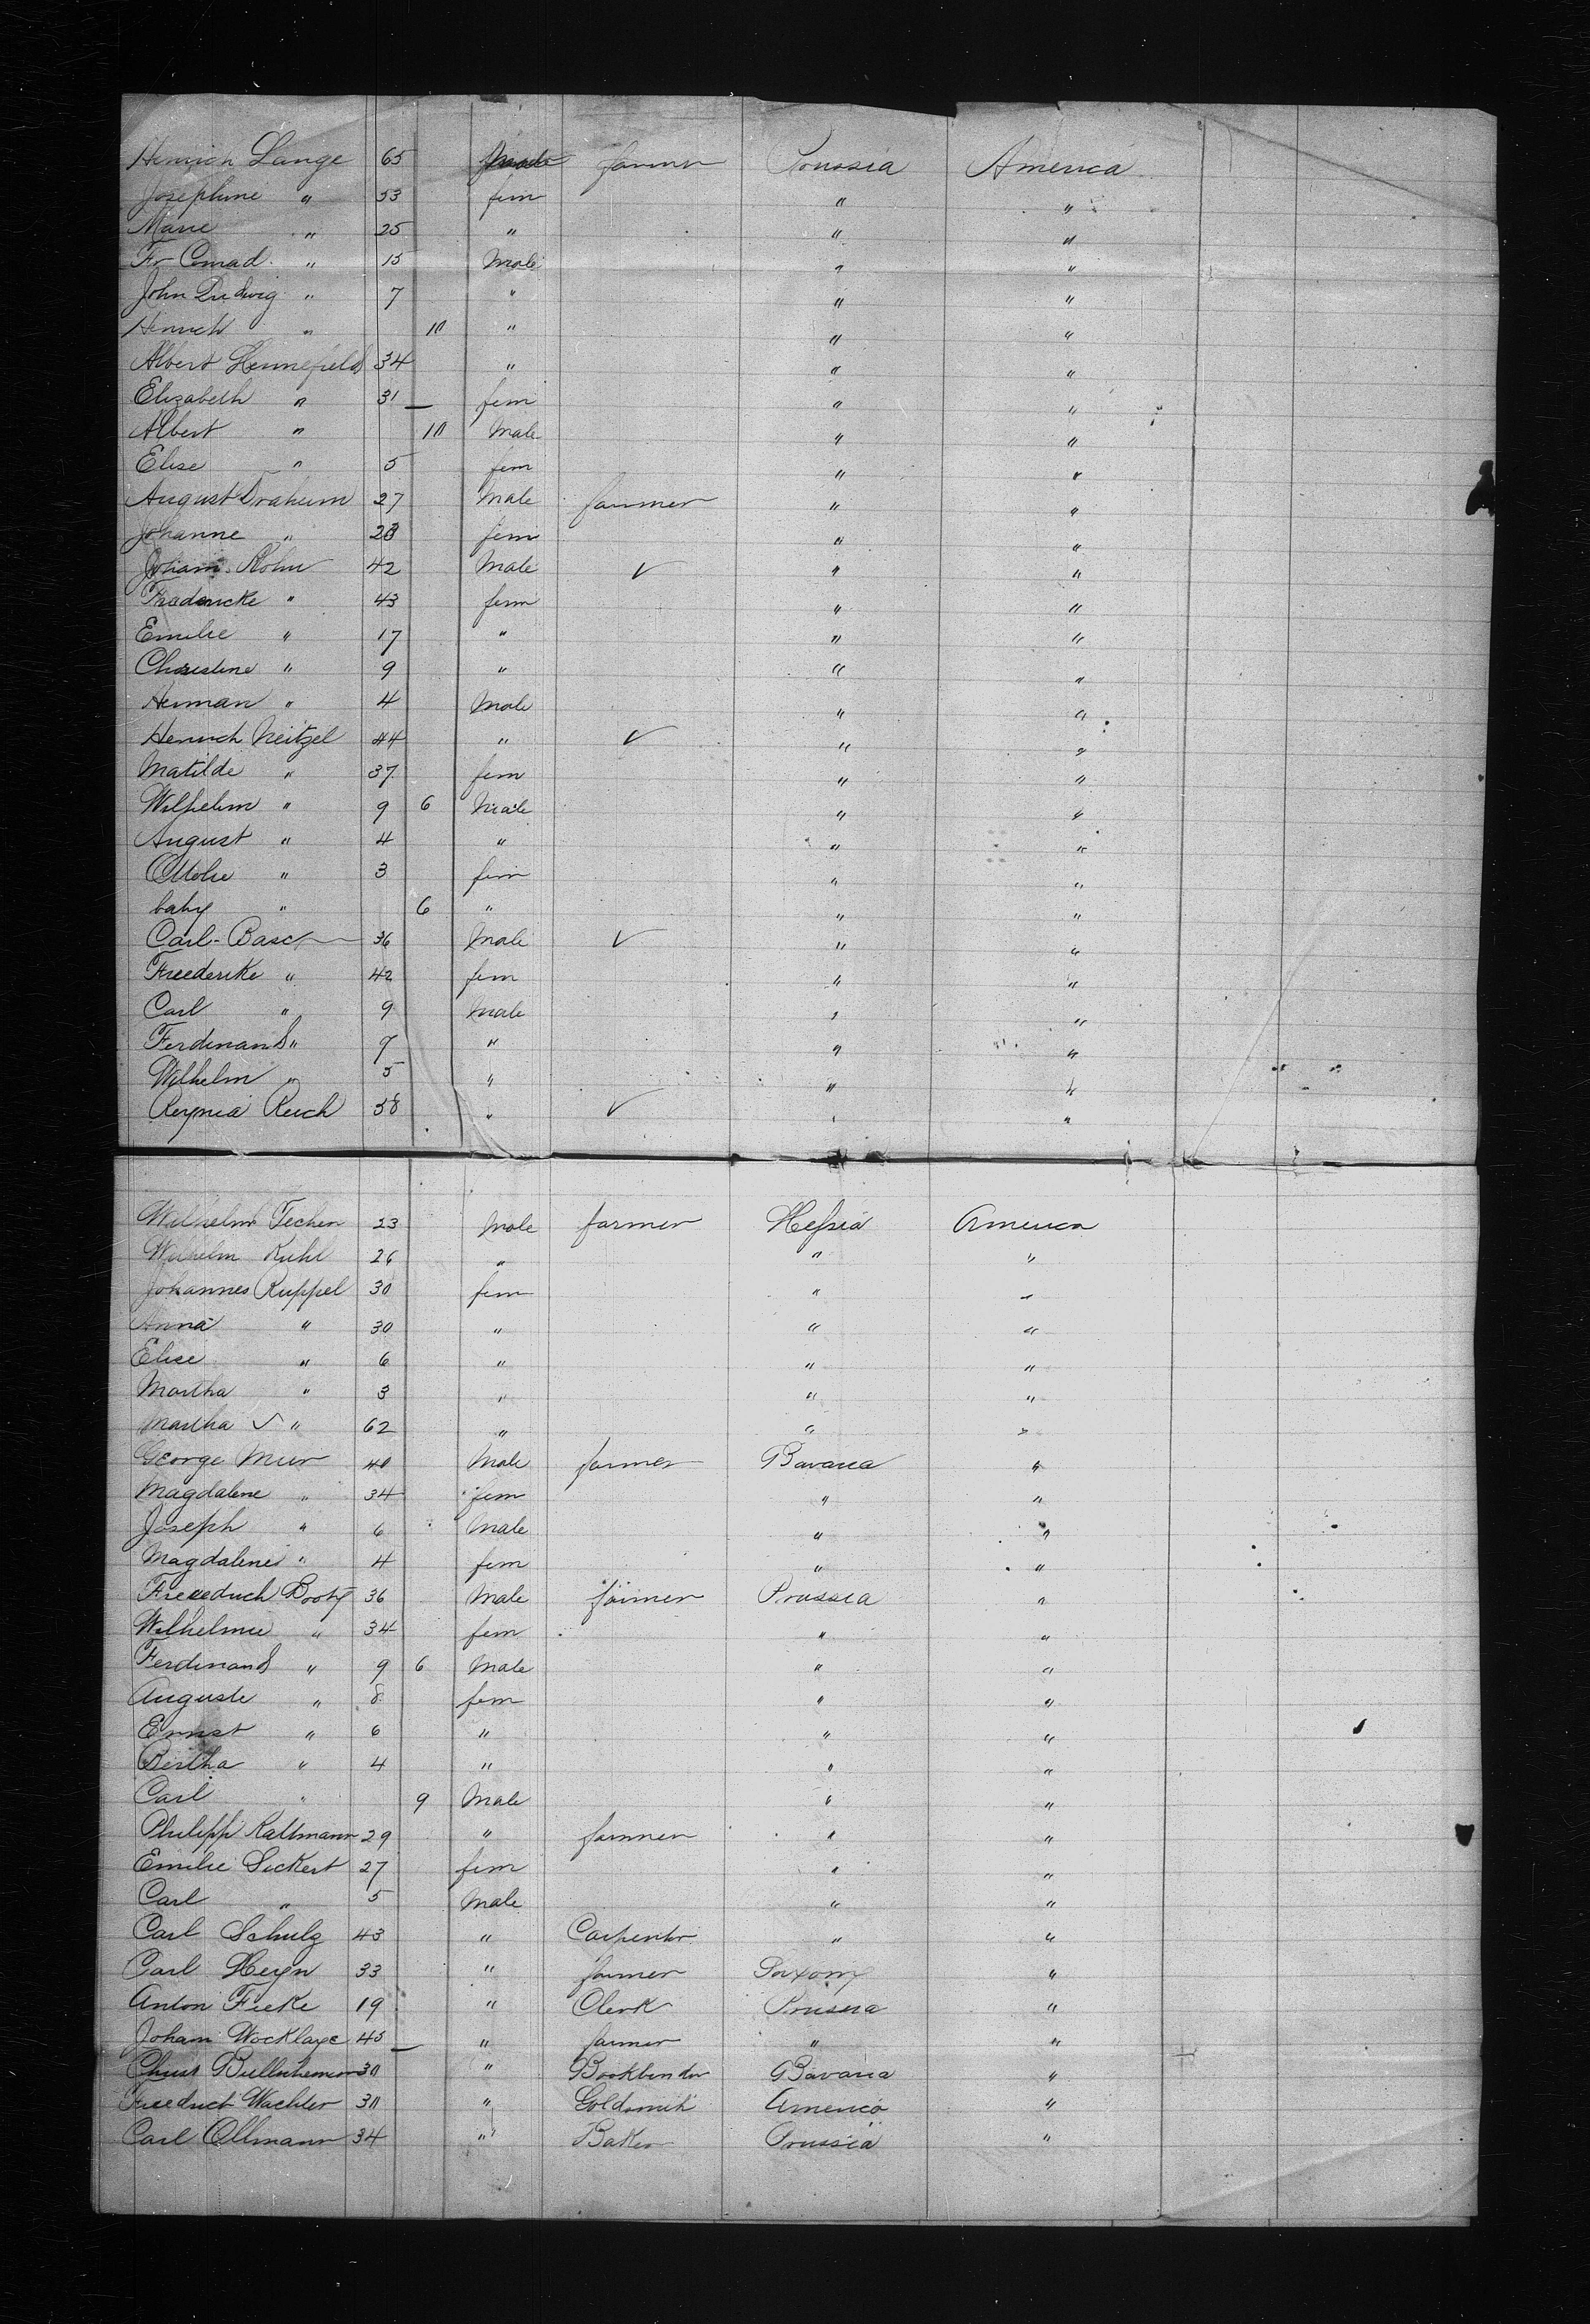 Heinrich Lange 65 Male farmer Prussia America
Josephine " 53 fem " "
Marie " 25 " " "
Fr Conrad " 15 Male " "
John Ludwig " 7 " " "
Heinrich " 10 " " "
Albert Hennefield 34 " " "
Elizabeth " 31 fem " "
Albert " 10 Male " "
Elise " 5 fem " "
August Draheim 27 Male farmer " "
Johanne " 23 fem " "
Joham Rohn 42 Male ✓ " "
Fredericke " 43 fem " "
Emilie " 17 " " "
Christine " 9 " " "
Herman " 4 Male " "
Heinrich Neitzel 44 " ✓ " "
Matilde " 37 fem " "
Wilhelm " 9 6 Male " "
August " 4 " " "
Ottolie " 3 fem " "
baby " 6 " " "
Carl Basch 36 Male ✓ " "
Freederike " 42 fem " "
Carl " 9 Male " "
Ferdinand " 7 " " "
Wilhelm " 5 " " "
Reich 58 " ✓ " "
Wilhelm Techen 23 Male farmer Hessia America
Wilhelm Kuhl 26 " " "
Johannes Ruppel 30 fem " "
Anna " 30 " " "
Elise " 6 " " "
Martha " 3 " " "
Martha ✓ " 62 " " "
George 40 Male farmer Bavaria "
Magdalene " 34 fem " "
Joseph " 6 Male " "
Magdalene " 4 fem " "
Freeedrich 36 Male farmer Prussia "
Wilhelmie " 34 fem " "
Ferdinand " 9 6 Male " "
Auguste " 8 fem " "
Ernst " 6 " " "
Bertha " 4 " " "
Carl " 9 Male " "
Philipp Kattmann 29 " farmer " "
Emilie Sickert 27 fem " "
Carl " 5 Male " "
Carl Schulz 43 " Carpenter " "
Carl Heyn 33 " farmer Saxony "
Anton Fieke 19 " Clerk Prussia "
Joham 45 " farmer " "
Christ 30 " Bookbinder Bavaria "
Freedrich Wachter 30 " Goldsmith America "
Carl Ollmann 34 " Baker Prussia "